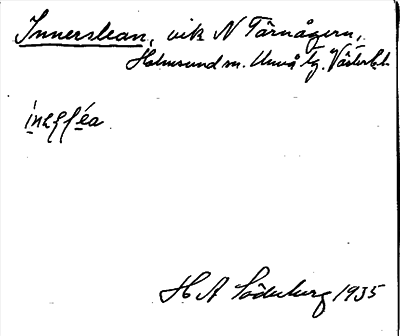 Innerslean, vik N Tärnögern,
Holmsund sn. Umeå tg. Västerb.
H A Söderberg 1935